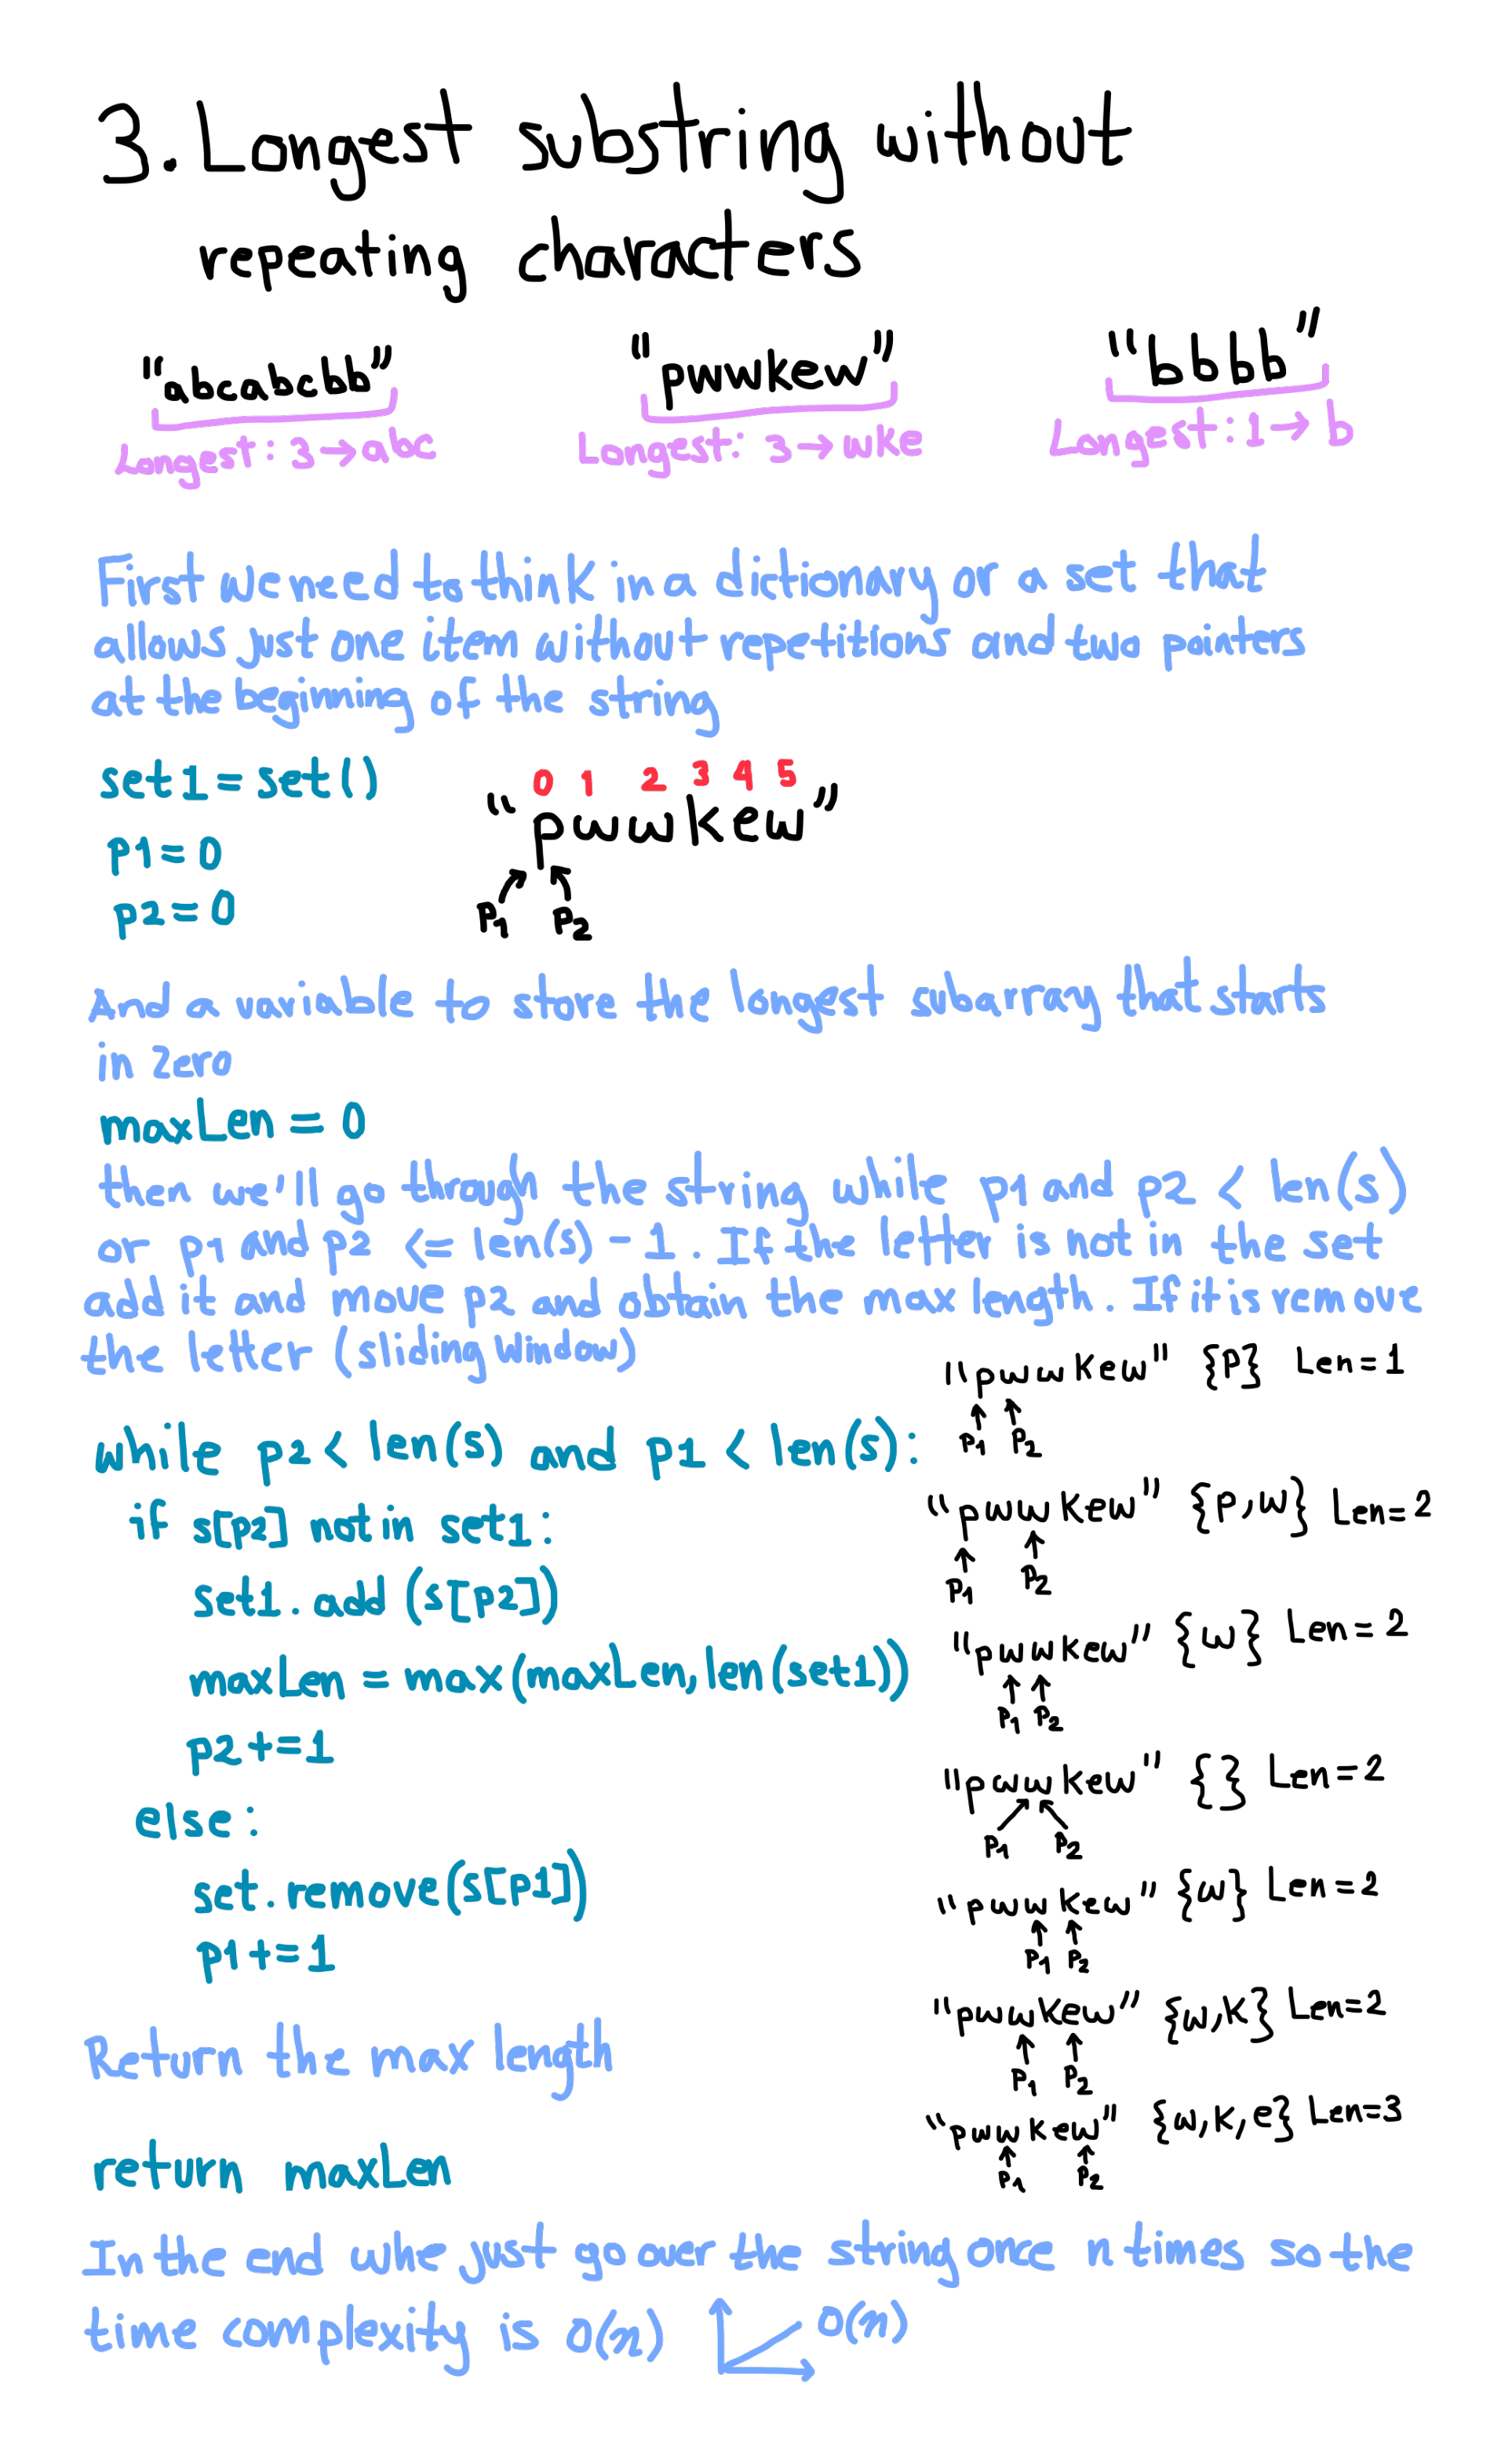 3. Longest substring without
repeating characters
"abcabcbb"
Longest: 3→abc
"pwwkew"
Longest: 3→wke
"bbbb"
Longest: 1→b
First we need to think in a dictionary or a set that
allows just one item without repetitions and two pointers
at the beginning of the string
set1=set()
p1=0
p2=0
0 1 2 3 4 5
"pwwkew"
P1 P2
And a variable to store the longest subarray that starts
in zero
maxLen = 0
then we'll go through the string while p1 and p2 < len(s)
or p1 and p2 <= len(s) - 1. If the letter is not in the set
add it and move p2 and obtain the max length. If it is remove
the letter (sliding window)
while p2 < len(s) and p1 < len(s):
if s[p2] not in set1:
set1.add(s[p2])
maxLen = max(maxLen, len(set1))
p2+=1
else:
set.remove(s[p1])
p1+=1
"pwwkew" {P} Len=1
P1 P2
"pwwkew" {P,w} Len=2
P1 P2
"pwwkew" {w} Len=2
P1 P2
"pwwkew" {} Len=2
P1 P2
"pwwkew" {w} Len=2
P1 P2
"pwwkew" {w,k} Len=2
P1 P2
"pwwkew" {w,k,e} Len=3
P1 P2
Return the max length
return maxLen
In the end whe just go over the string once n times so the
time complexity is O(n) O(n)